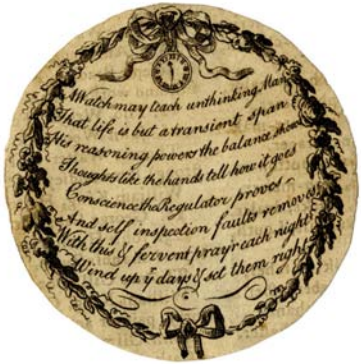 A Watch may teach unthinking Man
That life is but a transient span
His reasoning powers the balance show
Thoughts like the hands tell how it goes
Conscience the Regulator proves
And self inspection faults removes
With this & fervent pray'r each night
Wind up yͤ days & set them right